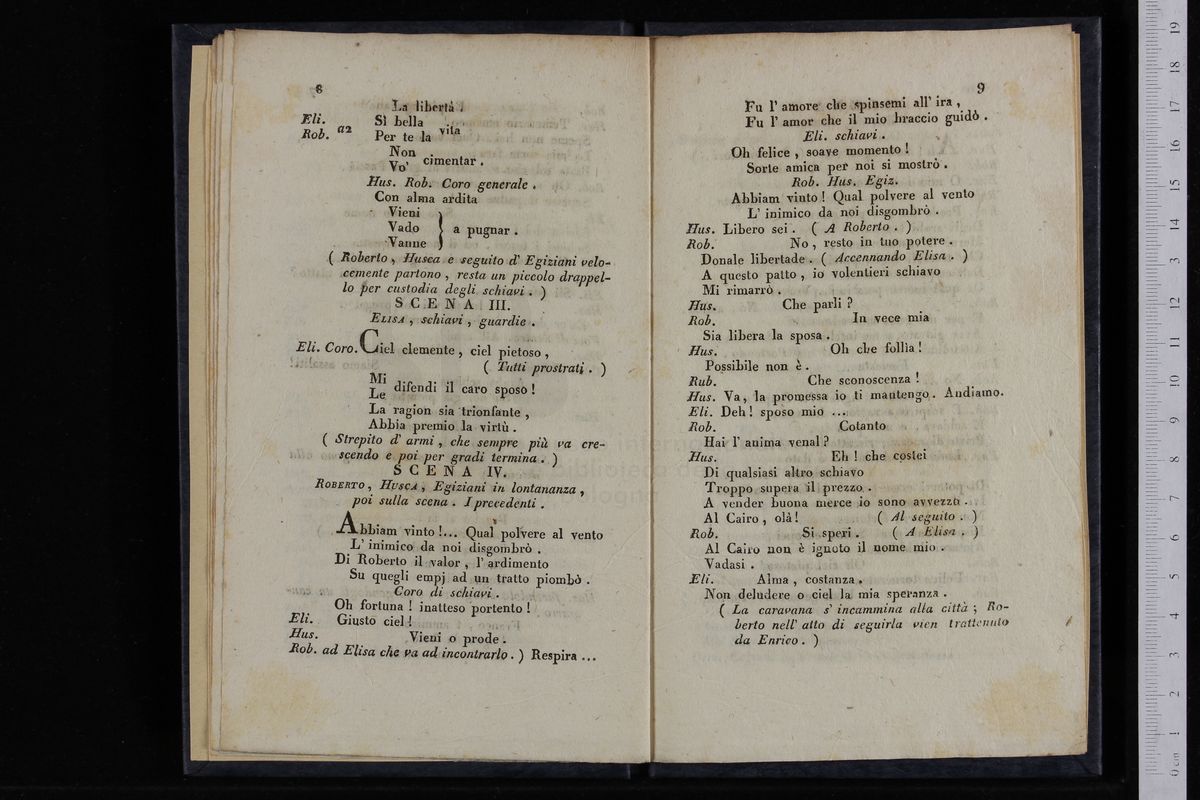 8
La libertà.
Eli. Sì bella
Rob. a2 Per te la vita
Non
Vo' cimentar.
Hus. Rob. Coro generale.
Con alma ardita
Vieni
Vado } a pugnar.
Vanne
( Roberto, Husca e seguito d' Egiziani velo-
cemente partono, resta un piccolo drappel-
lo per custodia degli schiavi. )
SCENA III.
ELISA, schiavi, guardie.
Eli. Coro. Ciel clemente, ciel pietoso,
( Tutti prostrati. )
Mi
Le difendi il caro sposo!
La ragion sia trionfante,
Abbia premio la virtù.
( Strepito d' armi, che sempre più va cre-
scendo e poi per gradi termina. )
SCENA IV.
ROBERTO, HUSCA, Egiziani in lontananza,
poi sulla scena. I precedenti.
Abbiam vinto!... Qual polvere al vento
L' inimico da noi disgombrò.
Di Roberto il valor, l' ardimento
Su quegli empj ad un tratto piombò.
Coro di schiavi.
Oh fortuna! inatteso portento!
Eli. Giusto ciel!
Hus. Vieni o prode.
Rob. ad Elisa che va ad incontrarlo. ) Respira ...
9
Fu l' amore che spinsemi all' ira,
Fu l' amor che il mio braccio guidò.
Eli. schiavi.
Oh felice, soave momento!
Sorte amica per noi si mostrò.
Rob. Hus. Egiz.
Abbiam vinto! Qual polvere al vento
L' inimico da noi disgombrò.
Hus. Libero sei. ( A Roberto. )
Rob. No, resto in tuo potere.
Donale libertade. ( Accennando Elisa. )
A questo patto, io volentieri schiavo
Mi rimarrò.
Hus. Che parli?
Rob. In vece mia
Sia libera la sposa.
Hus. Oh che follìa!
Possibile non è.
Rub. Che sconoscenza!
Hus. Va, la promessa io ti mantengo. Andiamo.
Eli. Deh! sposo mio ...
Rob. Cotanto
Hai l' anima venal?
Hus. Eh! che costei
Di qualsiasi altro schiavo
Troppo supera il prezzo.
A vender buona merce io sono avvezzo.
Al Cairo, olà! ( Al seguito. )
Rob. Si speri. ( A Elisa. )
Al Cairo non è ignoto il nome mio.
Vadasi.
Eli. Alma, costanza.
Non deludere o ciel la mia speranza.
( La caravana s' incammina alla città; Ro-
berto nell' atto di seguirla vien trattenuto
da Enrico. )